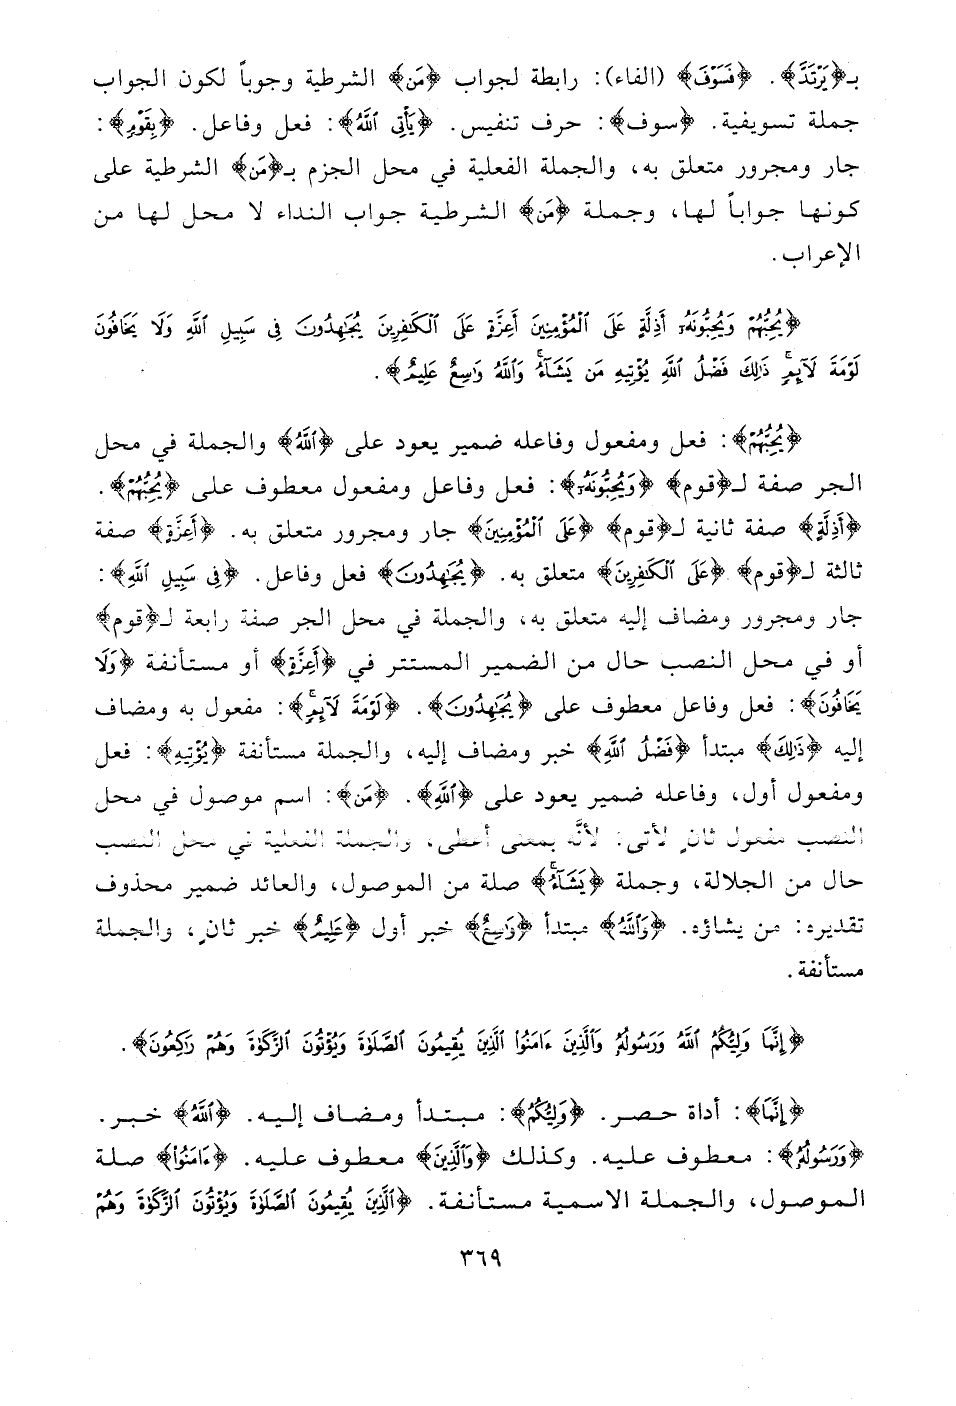 بـ﴿يَرْتَدَّ﴾. ﴿فَسَوْفَ﴾ (الفاء): رابطة لجواب ﴿مَن﴾ الشرطية وجوباً لكون الجواب
جملة تسويفية. ﴿سوف﴾: حرف تنفيس. ﴿يَأْتِى ٱللَّهُ﴾: فعل وفاعل. ﴿بِقَوْمٍ﴾:
جار ومجرور متعلق به، والجملة الفعلية في محل الجزم بـ﴿مَن﴾ الشرطية على
كونها جواباً لها، وجملة ﴿مَن﴾ الشرطية جواب النداء لا محل لها من
الإعراب.
﴿يُحِبُّهُمْ وَيُحِبُّونَهُۥٓ أَذِلَّةٍ عَلَى ٱلْمُؤْمِنِينَ أَعِزَّةٍ عَلَى ٱلْكَٰفِرِينَ يُجَٰهِدُونَ فِى سَبِيلِ ٱللَّهِ وَلَا يَخَافُونَ
لَوْمَةَ لَآئِمٍ ۚ ذَٰلِكَ فَضْلُ ٱللَّهِ يُؤْتِيهِ مَن يَشَآءُ ۚ وَٱللَّهُ وَٰسِعٌ عَلِيمٌ﴾.
﴿يُحِبُّهُمْ﴾: فعل ومفعول وفاعله ضمير يعود على ﴿ٱللَّهُ﴾ والجملة في محل
الجر صفة لـ﴿قوم﴾ ﴿وَيُحِبُّونَهُۥٓ﴾: فعل وفاعل ومفعول معطوف على ﴿يُحِبُّهُمْ﴾.
﴿أَذِلَّةٍ﴾ صفة ثانية لـ﴿قوم﴾ ﴿عَلَى ٱلْمُؤْمِنِينَ﴾ جار ومجرور متعلق به. ﴿أَعِزَّةٍ﴾ صفة
ثالثة لـ﴿قوم﴾ ﴿عَلَى ٱلْكَٰفِرِينَ﴾ متعلق به. ﴿يُجَٰهِدُونَ﴾ فعل وفاعل. ﴿فِى سَبِيلِ ٱللَّهِ﴾:
جار ومجرور ومضاف إليه متعلق به، والجملة في محل الجر صفة رابعة لـ﴿قوم﴾
أو في محل النصب حال من الضمير المستتر في ﴿أَعِزَّةٍ﴾ أو مستأنفة ﴿وَلَا
يَخَافُونَ﴾: فعل وفاعل معطوف على ﴿يُجَٰهِدُونَ﴾. ﴿لَوْمَةَ لَآئِمٍ ۚ﴾: مفعول به ومضاف
إليه ﴿ذَٰلِكَ﴾ مبتدأ ﴿فَضْلُ ٱللَّهِ﴾ خبر ومضاف إليه، والجملة مستأنفة ﴿يُؤْتِيهِ﴾: فعل
ومفعول أول، وفاعله ضمير يعود على ﴿ٱللَّهِ﴾. ﴿مَن﴾: اسم موصول في محل
النصب مفعول ثانٍ لأتى: لأنَّه بمعنى أعطى، والجملة الفعلية في محل النصب
حال من الجلالة، وجملة ﴿يَشَآءُ ۚ﴾ صلة من الموصول، والعائد ضمير محذوف
تقديره: من يشاؤه. ﴿وَٱللَّهُ﴾ مبتدأ ﴿وَٰسِعٌ﴾ خبر أول ﴿عَلِيمٌ﴾ خبر ثانٍ، والجملة
مستأنفة.
﴿إِنَّمَا وَلِيُّكُمُ ٱللَّهُ وَرَسُولُهُۥ وَٱلَّذِينَ ءَامَنُوا۟ ٱلَّذِينَ يُقِيمُونَ ٱلصَّلَوٰةَ وَيُؤْتُونَ ٱلزَّكَوٰةَ وَهُمْ رَٰكِعُونَ﴾.
﴿إِنَّمَا﴾: أداة حصر. ﴿وَلِيُّكُمُ﴾: مبتدأ ومضاف إليه. ﴿ٱللَّهُ﴾ خبر.
﴿وَرَسُولُهُۥ﴾: معطوف عليه. وكذلك ﴿وَٱلَّذِينَ﴾ معطوف عليه. ﴿ءَامَنُوا۟﴾ صلة
الموصول، والجملة الاسمية مستأنفة. ﴿ٱلَّذِينَ يُقِيمُونَ ٱلصَّلَوٰةَ وَيُؤْتُونَ ٱلزَّكَوٰةَ وَهُمْ
٣٦٩